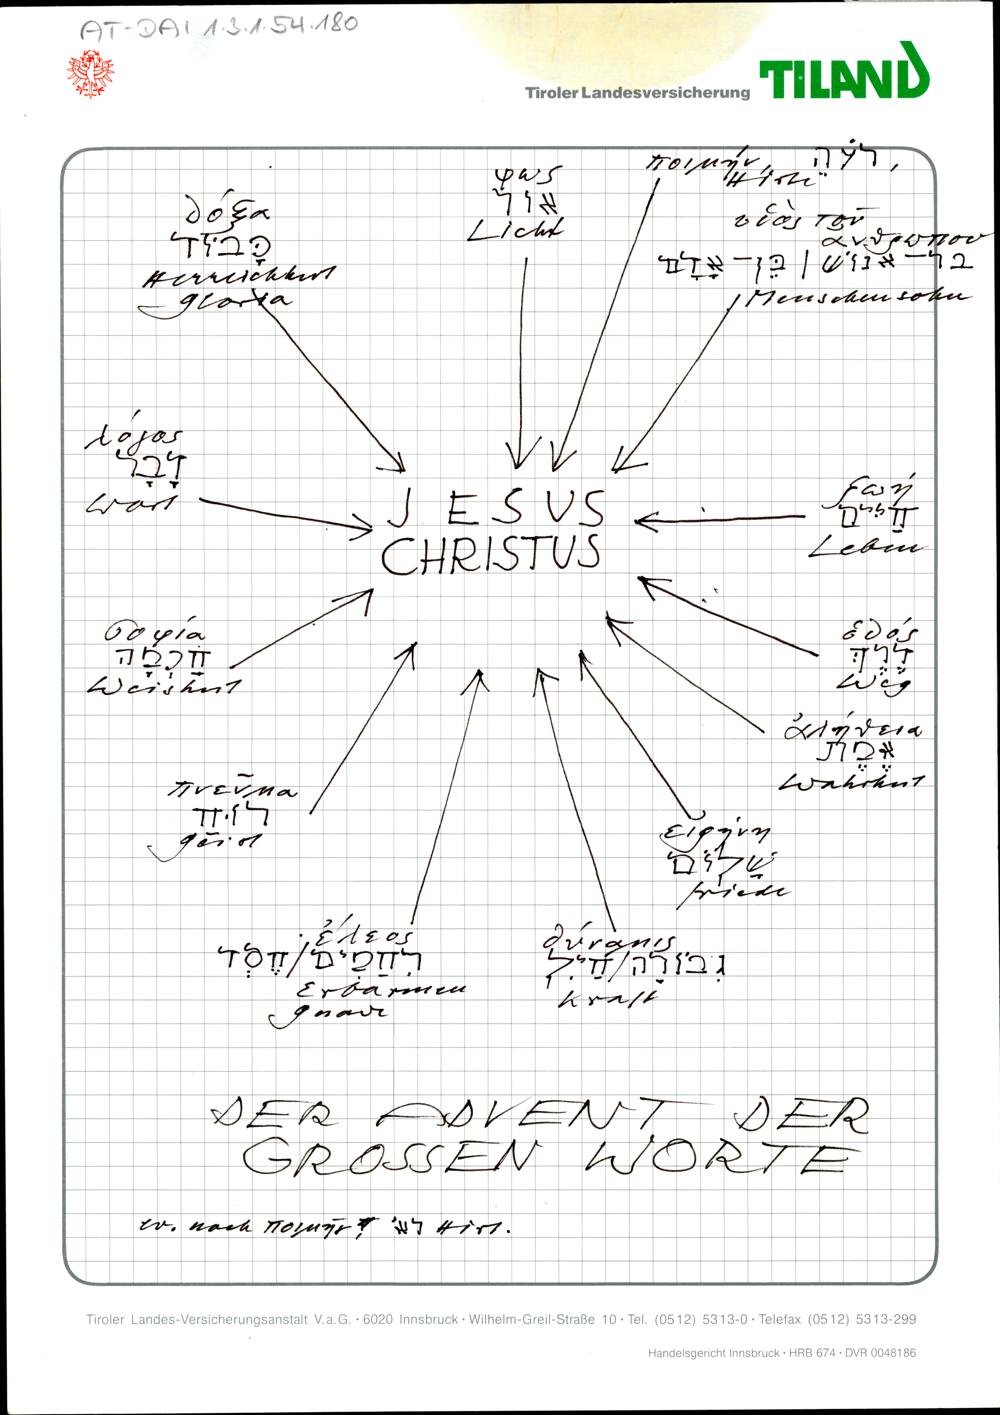 AT-DAI 1.3.1.54.180
Tiroler Landesversicherung TILAND
δόξα
כָּבוֹד
Herrlichkeit
Gloria
φως
אוֹר
Licht
ποιμήν, רֹעֶה,
Hirte
υἱὸς τοῦ
ἀνθρωπου
בר־אנוש / בֶּן־אָדָם
Menschensohn
λόγος
דָּבָר
Wort
JESUS
CHRISTUS
ζωή
חַיִּים
Leben
σοφία
חָכְמָה
Weisheit
ὁδός
דֶּרֶךְ
Weg
ἀλήθεια
אֱמֶת
Wahrheit
πνεῦμα
רוּחַ
Geist
εἰρήνη
שָׁלוֹם
Friede
ἔλεος
רַחֲמִים/חֶסֶד
Erbarmen
Gnade
δύναμις
גְּבוּרָה/חַיִל
Kraft
DER ADVENT DER
GROSSEN WORTE
ev. noch ποιμήν Hirt.
Tiroler Landes-Versicherungsanstalt V.a.G. · 6020 Innsbruck · Wilhelm-Greil-Straße 10 · Tel. (0512) 5313-0 · Telefax (0512) 5313-299
Handelsgericht Innsbruck · HRB 674 · DVR 0048186